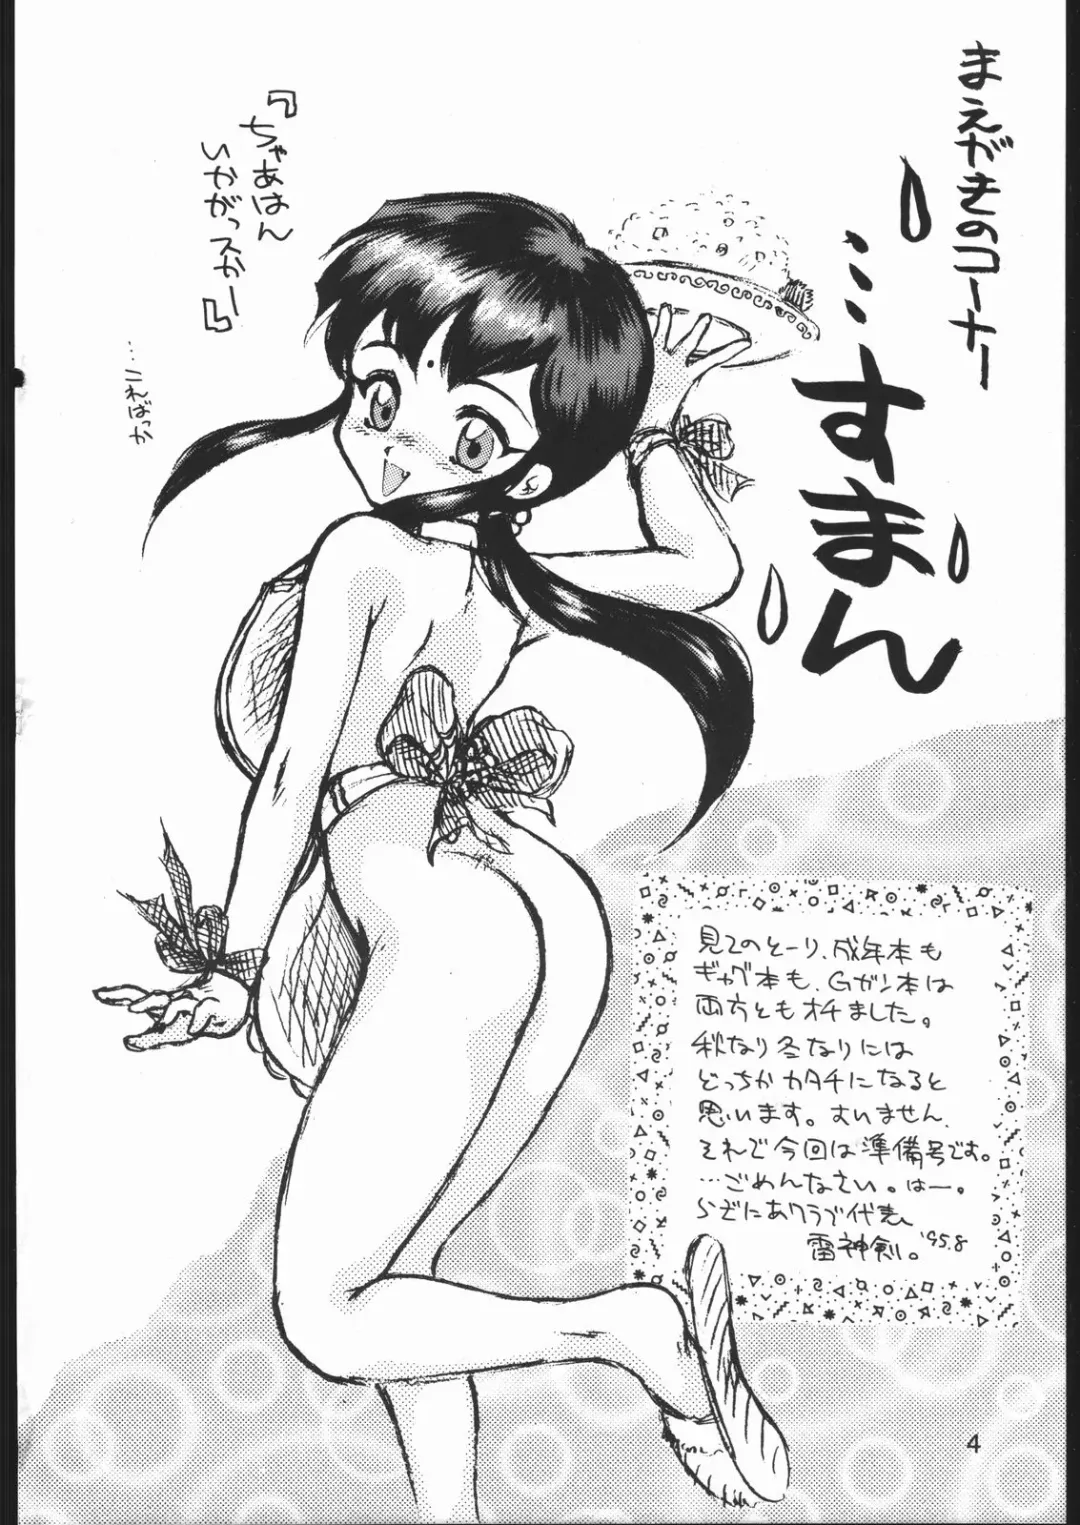 まえがきのコーナー
…すまん
『ちゃあはん
いかがっスかー』
…こればっか
見てのとーり、成年本も
ギャグ本も、Gガン本は
両方ともオチました。
秋なり冬なりには
どっちかカタチになると
思います。すいません、
それで今回は準備号です。
…ごめんなさい。はー。
らぞにあクラブ代表、
雷神剣。'95.8
4